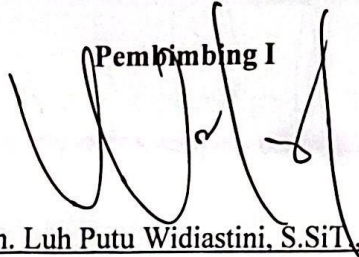 Pembimbing I
n. Luh Putu Widiastini, S.SiT.,